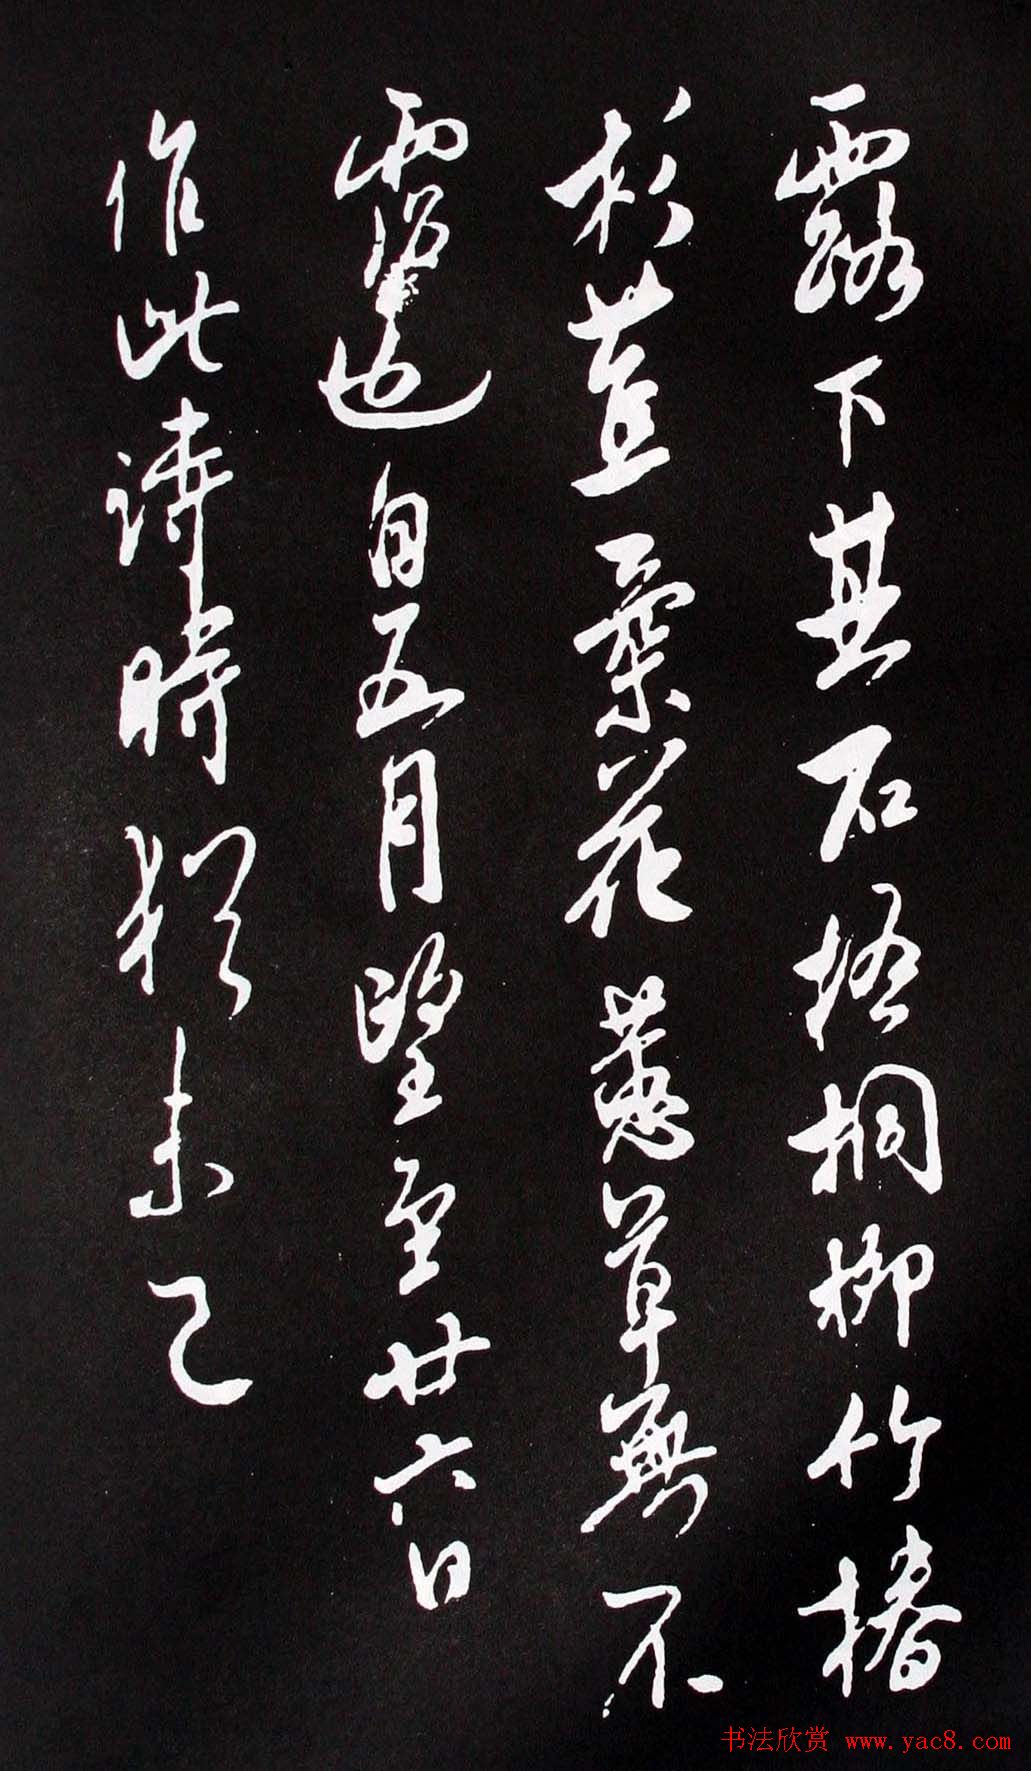 露下其石梧桐柳竹椿
杉葉花蕙草無不
霑也自五月望至廿六日
作此詩時猶未已
书法欣赏 www.yac8.com